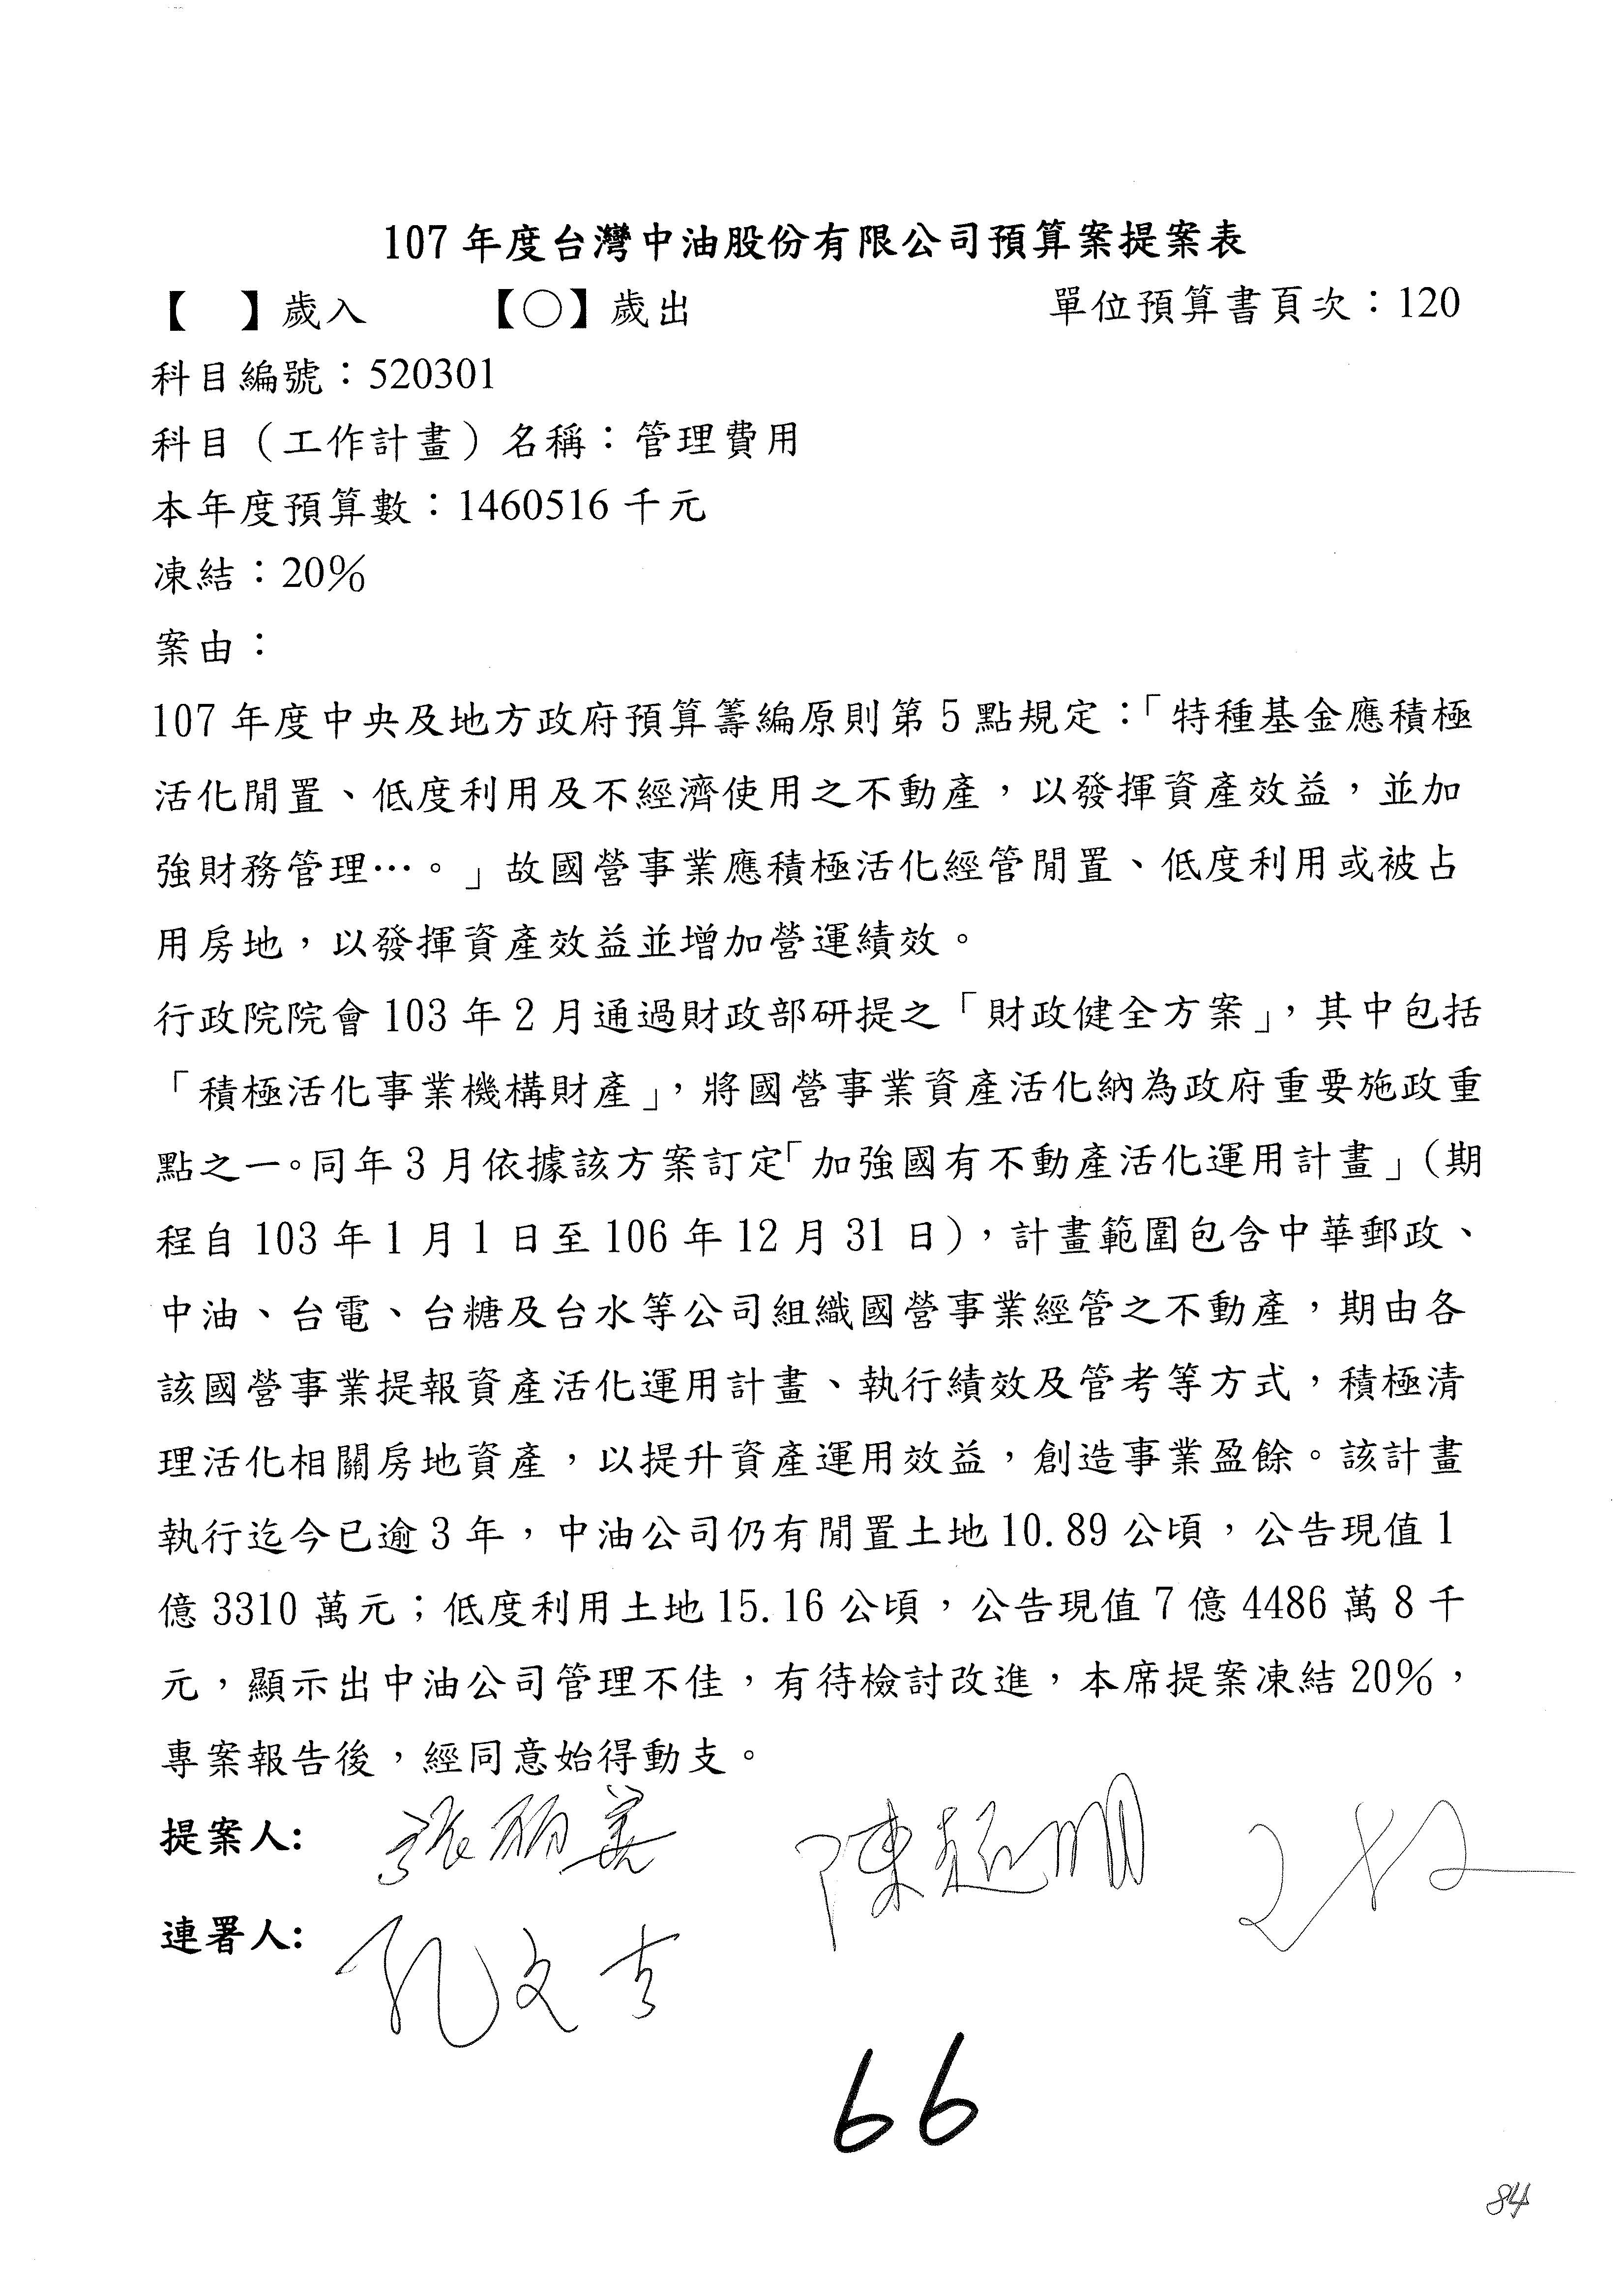 107年度台灣中油股份有限公司預算案提案表
【　】歲入　　【○】歲出　　單位預算書頁次：120
科目編號：520301
科目（工作計畫）名稱：管理費用
本年度預算數：1460516千元
凍結：20%
案由：
107年度中央及地方政府預算籌編原則第5點規定：「特種基金應積極
活化閒置、低度利用及不經濟使用之不動產，以發揮資產效益，並加
強財務管理…。」故國營事業應積極活化經管閒置、低度利用或被占
用房地，以發揮資產效益並增加營運績效。
行政院院會103年2月通過財政部研提之「財政健全方案」，其中包括
「積極活化事業機構財產」，將國營事業資產活化納為政府重要施政重
點之一。同年3月依據該方案訂定「加強國有不動產活化運用計畫」（期
程自103年1月1日至106年12月31日），計畫範圍包含中華郵政、
中油、台電、台糖及台水等公司組織國營事業經管之不動產，期由各
該國營事業提報資產活化運用計畫、執行績效及管考等方式，積極清
理活化相關房地資產，以提升資產運用效益，創造事業盈餘。該計畫
執行迄今已逾3年，中油公司仍有閒置土地10.89公頃，公告現值1
億3310萬元；低度利用土地15.16公頃，公告現值7億4486萬8千
元，顯示出中油公司管理不佳，有待檢討改進，本席提案凍結20%，
專案報告後，經同意始得動支。
提案人：張麗善　陳超明
連署人：孔文吉
66
84